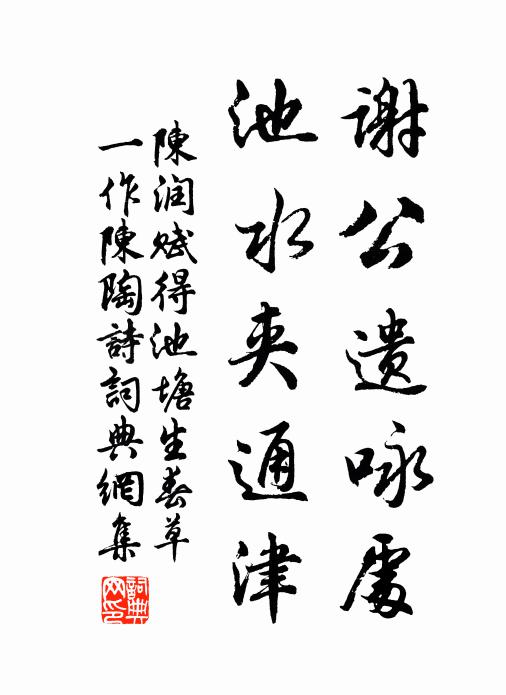 謝公遺咏處
池水夾通津
陳润賦得池塘生春草
一作陳陶詩詞典網集
詞典
网印